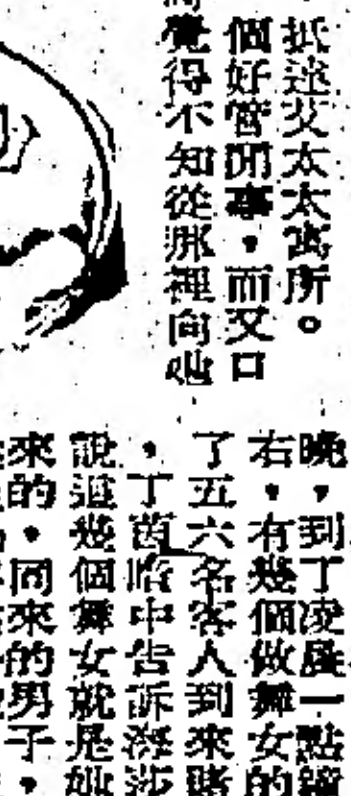 抵達艾太太寓所。
個好管閒事，而又口
覺得不知從那裡向她
晚，到了凌晨一點鐘
右，有幾個做舞女的
了五六名客人到來賭
，丁茵暗中告訴海莎
說這幾個舞女就是她
來的，同來的男子，